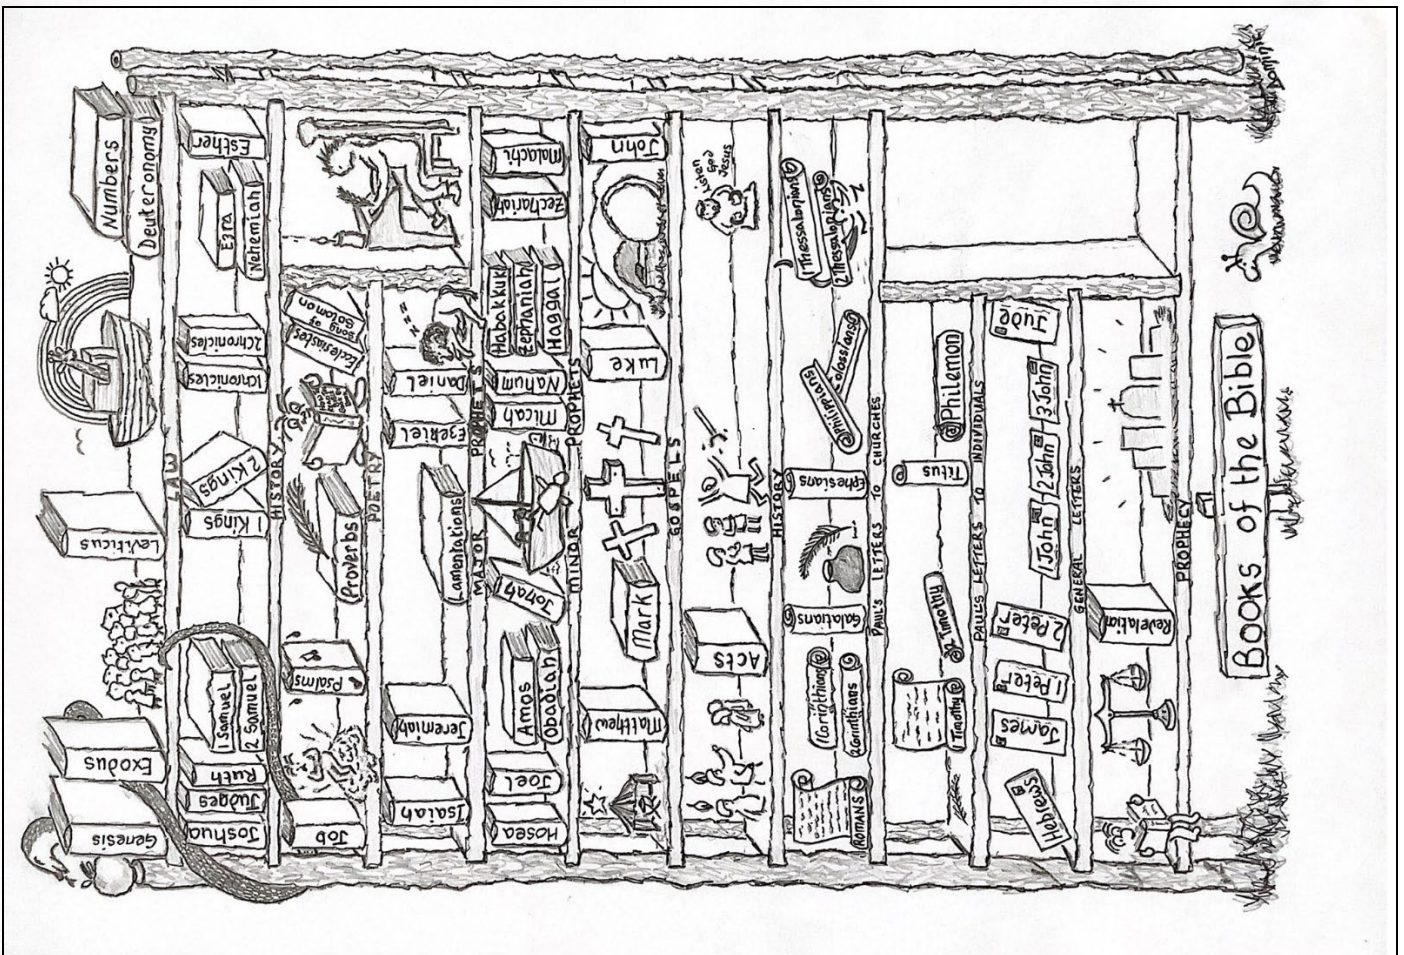 Genesis
Exodus
Leviticus
Numbers
Deuteronomy
LAW
Joshua
Judges
Ruth
1 Samuel
2 Samuel
1 Kings
2 Kings
1Chronicles
2Chronicles
Ezra
Nehemiah
Esther
HISTORY
Job
Psalms
Proverbs
Ecclesiastes
Song of
Solomon
POETRY
Isaiah
Jeremiah
Lamentations
Ezekiel
Daniel
z z z
MAJOR PROPHETS
Hosea
Joel
Amos
Obadiah
Jonah
Micah
Nahum
Habakkuk
Zephaniah
Haggai
Zechariah
Malachi
MINOR PROPHETS
Matthew
Mark
Luke
John
GOSPELS
Acts
Listen
God
Jesus
HISTORY
ROMANS
1Corinthians
2Corinthians
Galatians
Ephesians
Philippians
Colossians
1 Thessalonians
2 Thessalonians
PAUL'S LETTERS TO CHURCHES
1 Timothy
2 Timothy
Titus
Philemon
PAUL'S LETTERS TO INDIVIDUALS
Hebrews
James
1 Peter
2 Peter
1John
2 John
3 John
Jude
GENERAL LETTERS
Revelation
PROPHECY
Books of the Bible